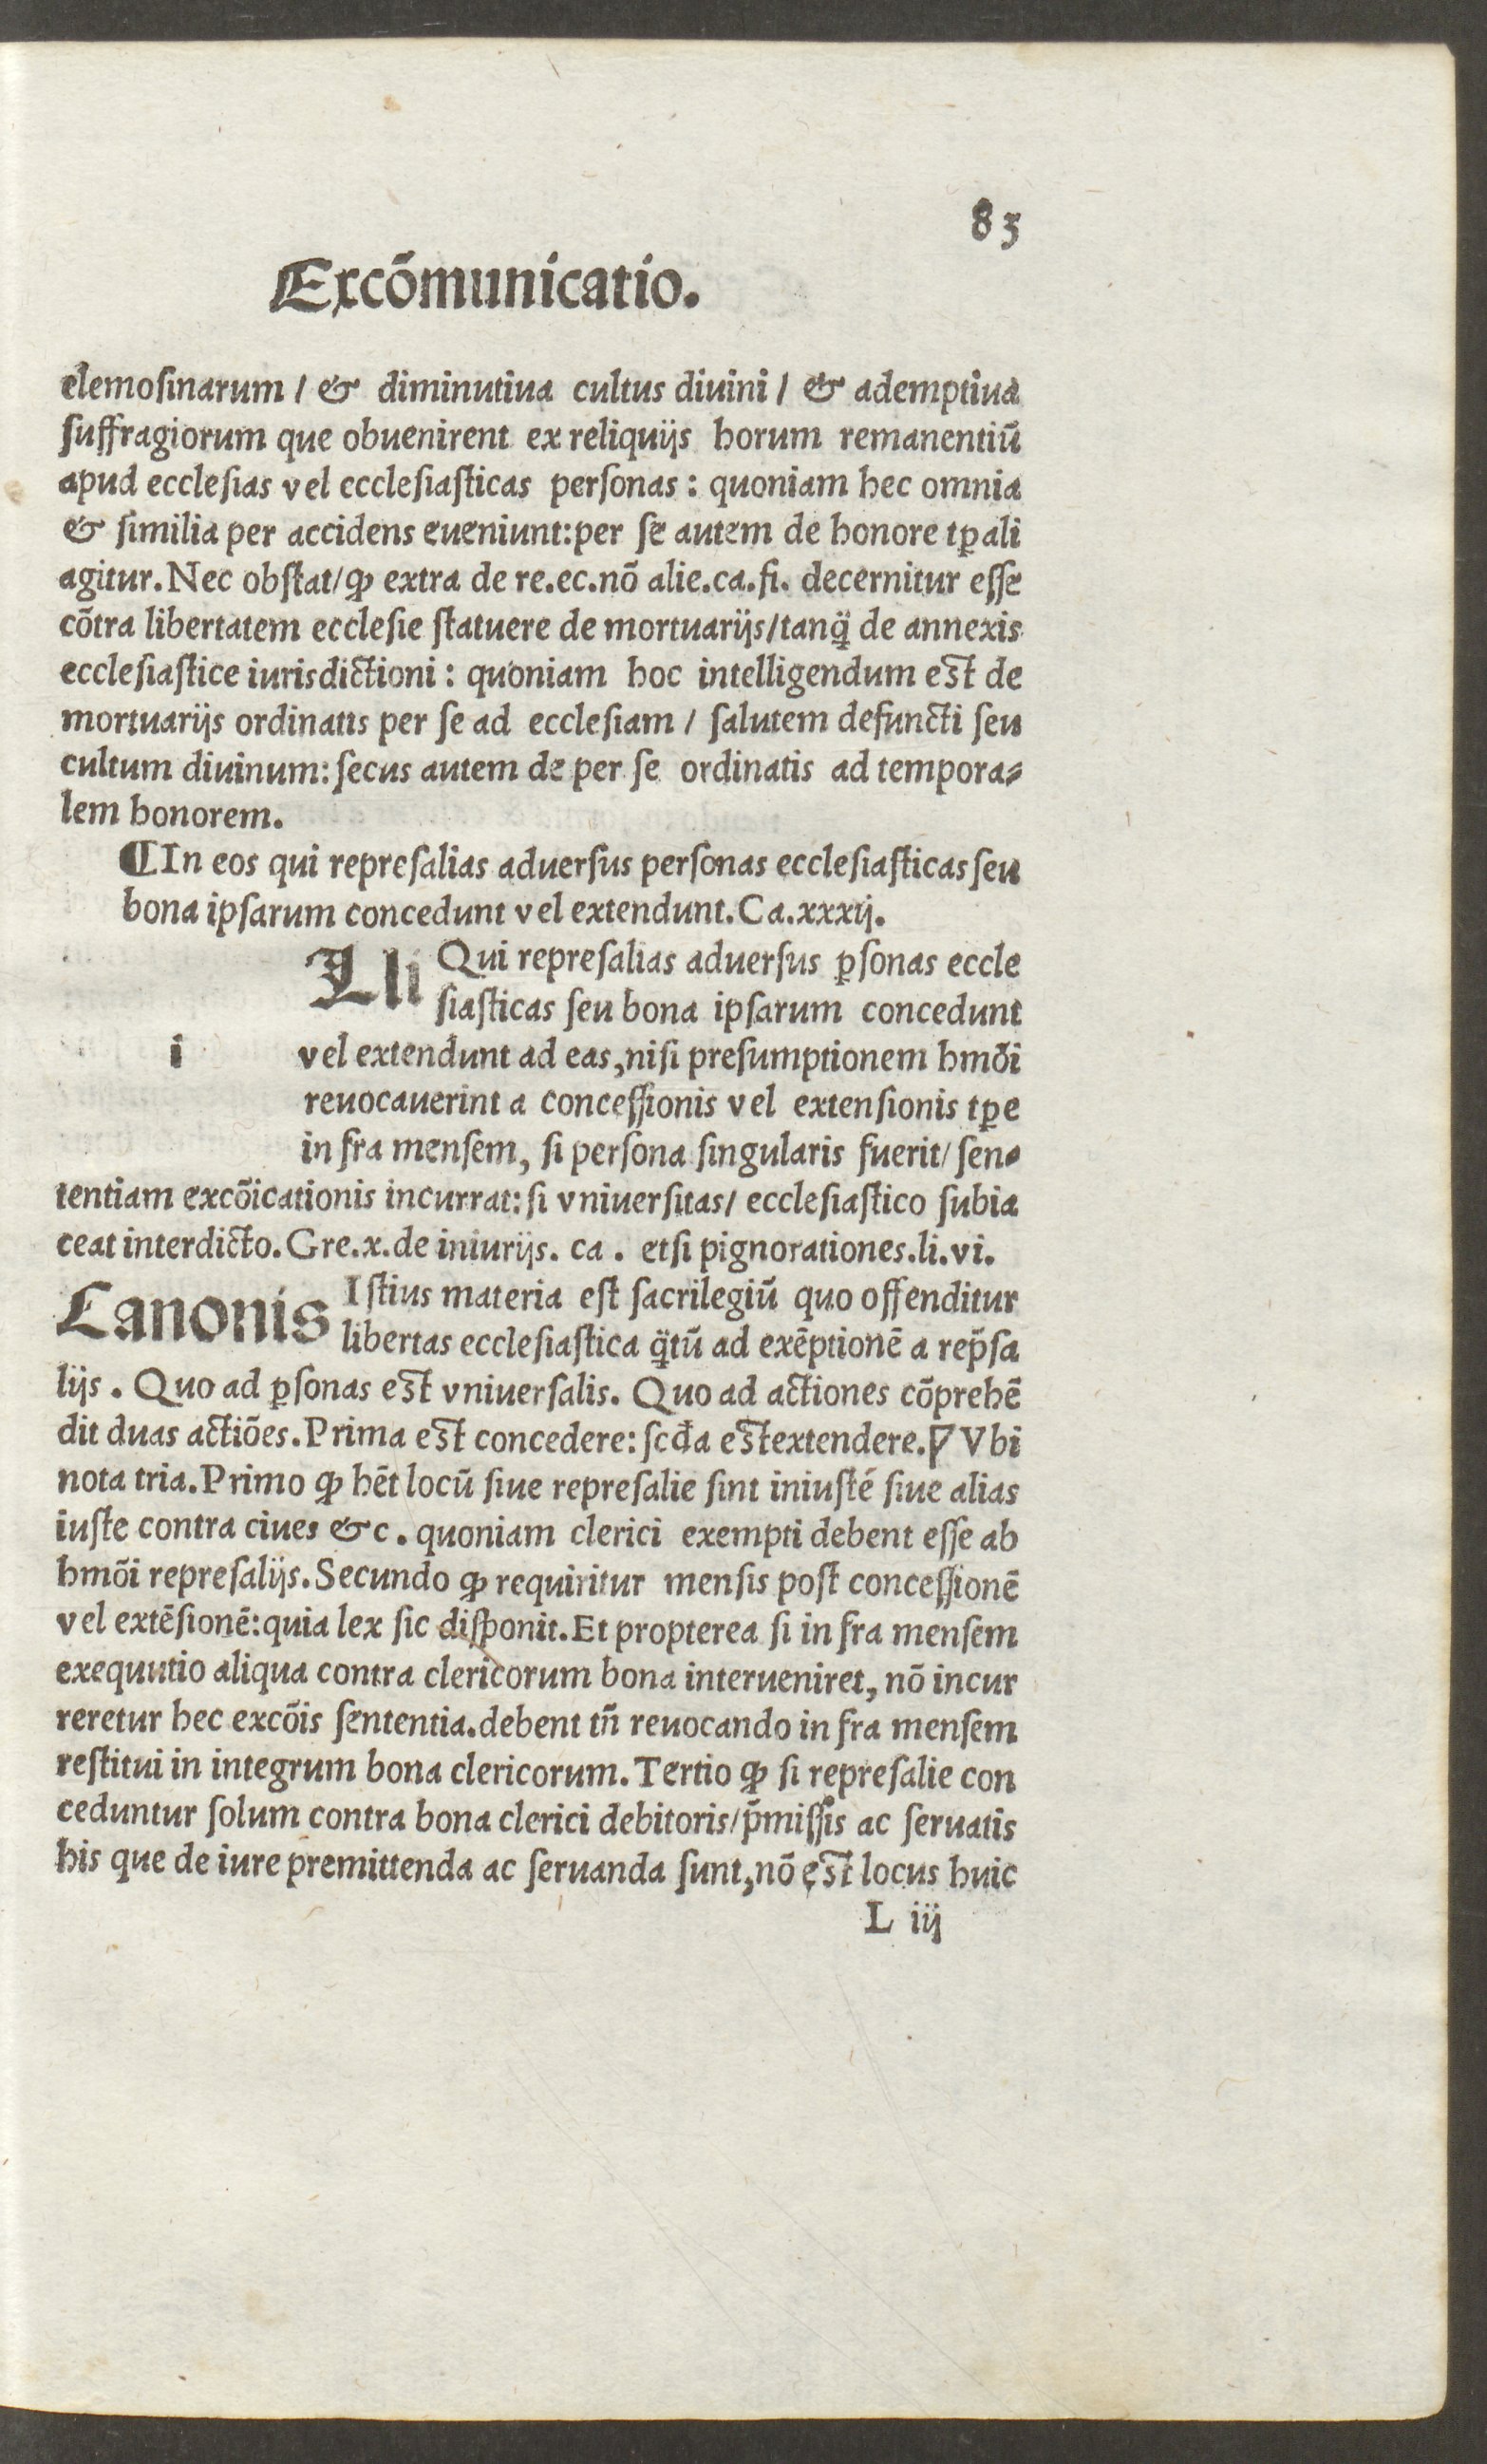 83
Excõmunicatio.
elemoſinarum / & diminutiua cultus diuini / & ademptiua
ſuffragiorum que obuenirent ex reliquijs horum remanentiũ
apud eccleſias vel eccleſiaſticas perſonas : quoniam hec omnia
& ſimilia per accidens eueniunt: per ſe autem de honore tꝑali
agitur. Nec obſtat/ ꝙ extra de re.ec.nõ alie.ca.fi. decernitur eſſe
cõtra libertatem eccleſie ſtatuere de mortuarijs/tanq̃ de annexis
eccleſiaſtice iurisdictioni : quoniam hoc intelligendum eſt de
mortuarijs ordinatis per ſe ad eccleſiam / ſalutem defuncti ſeu
cultum diuinum: ſecus autem de per ſe ordinatis ad tempora⸗
lem honorem.
¶In eos qui repreſalias aduerſus perſonas eccleſiaſticas ſeu
bona ipſarum concedunt vel extendunt. Ca.xxxij.
i
Lli Qui repreſalias aduerſus ꝑſonas eccle
ſiaſticas ſeu bona ipſarum concedunt
vel extendunt ad eas, niſi preſumptionem hmõi
reuocauerint a conceſſionis vel extenſionis tꝑe
in fra menſem, ſi perſona ſingularis fuerit/ ſen⸗
tentiam excõicationis incurrat: ſi vniuerſitas/ eccleſiaſtico ſubia
ceat interdicto. Gre.x.de iniurijs. ca . etſi pignorationes.li.vi.
Canonis Iſtius materia eſt ſacrilegiũ quo offenditur
libertas eccleſiaſtica q̃tũ ad exẽptionẽ a rep̃ſa
lijs . Quo ad ꝑſonas eſt vniuerſalis. Quo ad actiones cõprehẽ
dit duas actiões. Prima eſt concedere: ſcđa eſt extendere. ꝟ Vbi
nota tria. Primo ꝙ hẽt locũ ſiue repreſalie ſint iniuſté ſiue alias
iuſte contra ciues &c . quoniam clerici exempti debent eſſe ab
hmõi repreſalijs. Secundo ꝙ requiritur menſis poſt conceſſionẽ
vel extẽſionẽ: quia lex ſic diſponit. Et propterea ſi in fra menſem
exequutio aliqua contra clericorum bona interueniret, nõ incur
reretur hec excõis ſententia. debent tñ reuocando in fra menſem
reſtitui in integrum bona clericorum. Tertio ꝙ ſi repreſalie con
ceduntur ſolum contra bona clerici debitoris/ p̃miſſis ac ſeruatis
his que de iure premittenda ac ſeruanda ſunt, nõ eſt locus huic
L iij